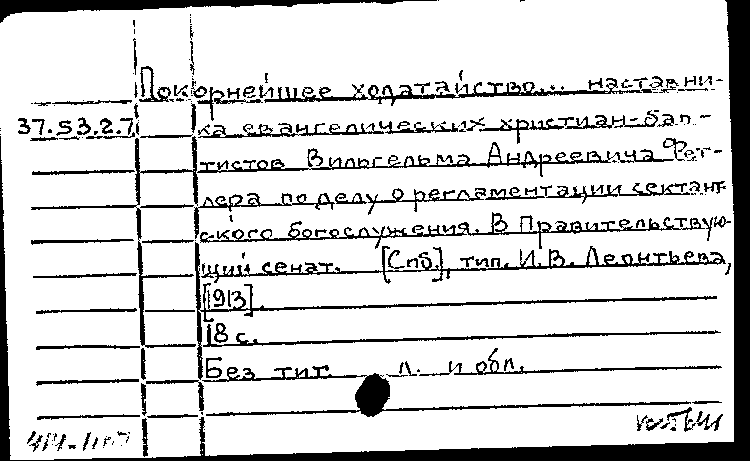 Покорнейшее ходатайство... наставни-
37.53.2.7 ка евангелических христиан-бап-
тистов Вильгельма Андреевича Фет-
лера по делу о регламентации сектант-
ского богослужения. В Правительствую-
щий сенат. [Спб], тип. И.В. Леонтьева,
[913].
18 с.
Без тит. л. и обл.